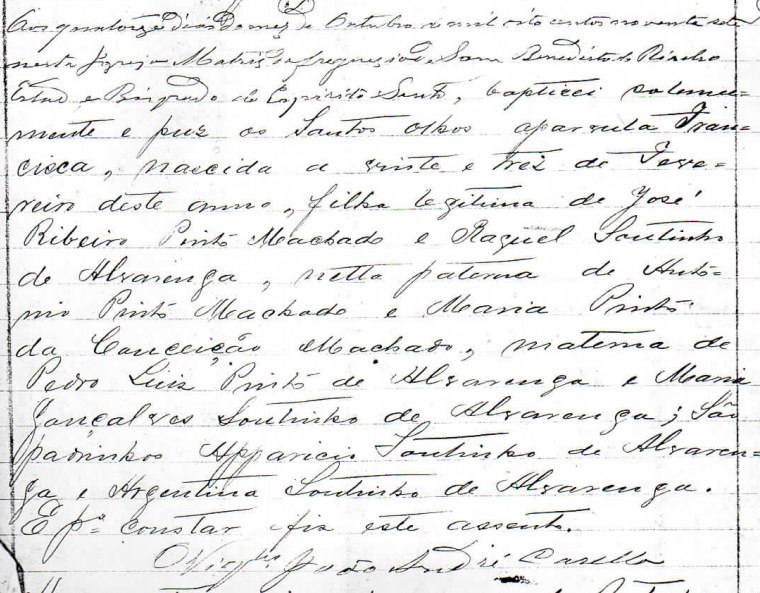 Aos quatorze dias do mez de Outubro de mil oito centos noventa sete
nesta Igreja Matriz da freguezia de Sam Benedicto do Riacho
Estado e Bispado do Espirito Santo, baptizei solemne=
mente e puz os Santos olhos a parvula Fran=
cisca, nascida a vinte e trez de Feve=
reiro deste anno, filha legitima de José
Ribeiro Pinto Machado e Raquel Soutinho
de Alvarenga, netta paterna de Antó=
nio Pinto Machado e Maria Pinto
da Conceição Machado, materna de
Pedro Luiz Pinto de Alvarenga e Maria
Gonçalves Soutinho de Alvarenga; São
padrinhos Apparicio Soutinho de Alvaren=
ga e Argentina Soutinho de Alvarenga.
E pª constar fiz este assento.
O Vigrº João André Casella